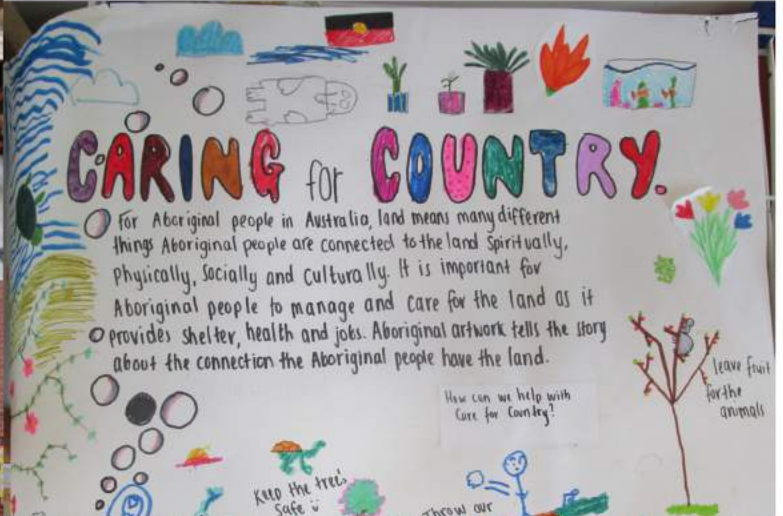 CARING for COUNTRY.
For Aboriginal people in Australia, land means many different
things Aboriginal people are connected to the land Spiritually,
Physically, Socially and Culturally. It is important for
Aboriginal people to manage and care for the land as it
provides shelter, health and jobs. Aboriginal artwork tells the story
about the connection the Aboriginal people have the land.
How can we help with
Care for Country?
leave fruit
for the
animals
Keep the tree's
Safe ü
Throw our